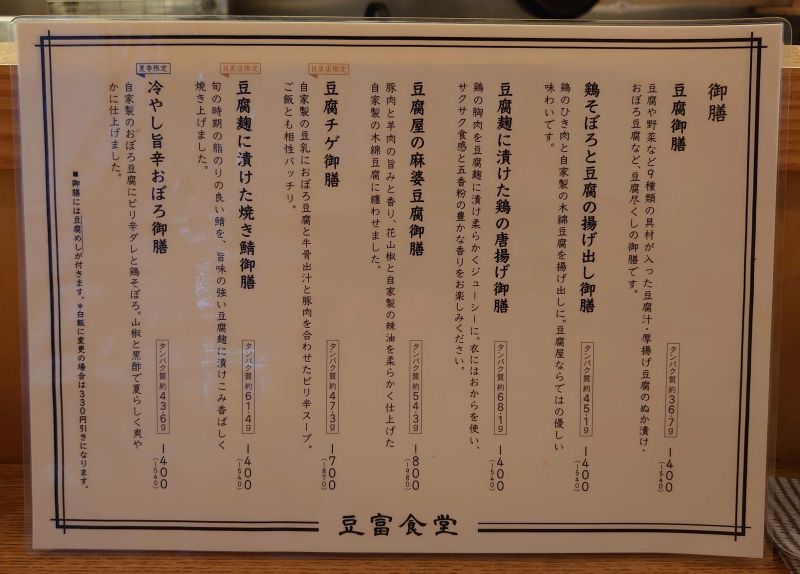 御膳
豆腐御膳
豆腐や野菜など9種類の具材が入った豆腐汁・厚揚げ豆腐のぬか漬け・
おぼろ豆腐など、豆腐尽くしの御膳です。
タンパク質 約36.7g
一四〇〇
(一五四〇)
鶏そぼろと豆腐の揚げ出し御膳
鶏のひき肉と自家製の木綿豆腐を揚げ出しに。豆腐屋ならではの優しい
味わいです。
タンパク質 約45.1g
一四〇〇
(一五四〇)
豆腐麹に漬けた鶏の唐揚げ御膳
鶏の胸肉を豆腐麹に漬け柔らかくジューシーに。衣にはおからを使い、
サクサク食感と五香粉の豊かな香りをお楽しみください。
タンパク質 約68.1g
一四〇〇
(一五四〇)
豆腐屋の麻婆豆腐御膳
豚肉と羊肉の旨みと香り、花山椒と自家製の辣油を柔らかく仕上げた
自家製の木綿豆腐に纏わせました。
タンパク質 約54.3g
一八〇〇
(一九八〇)
目黒店限定
豆腐チゲ御膳
自家製の豆乳におぼろ豆腐と牛骨出汁と豚肉を合わせたピリ辛スープ。
ご飯とも相性バッチリ。
タンパク質 約47.3g
一七〇〇
(一八七〇)
目黒店限定
豆腐麹に漬けた焼き鯖御膳
旬の時期の脂のりの良い鯖を、旨味の強い豆腐麹に漬けこみ香ばしく
焼き上げました。
タンパク質 約61.4g
一四〇〇
(一五四〇)
夏季限定
冷やし旨辛おぼろ御膳
自家製のおぼろ豆腐にピリ辛ダレと鶏そぼろ。山椒と黒酢で夏らしく爽や
かに仕上げました。
タンパク質 約43.6g
一四〇〇
(一五四〇)
■御膳には豆腐めしが付きます。*白飯に変更の場合は330円引きになります。
豆富食堂